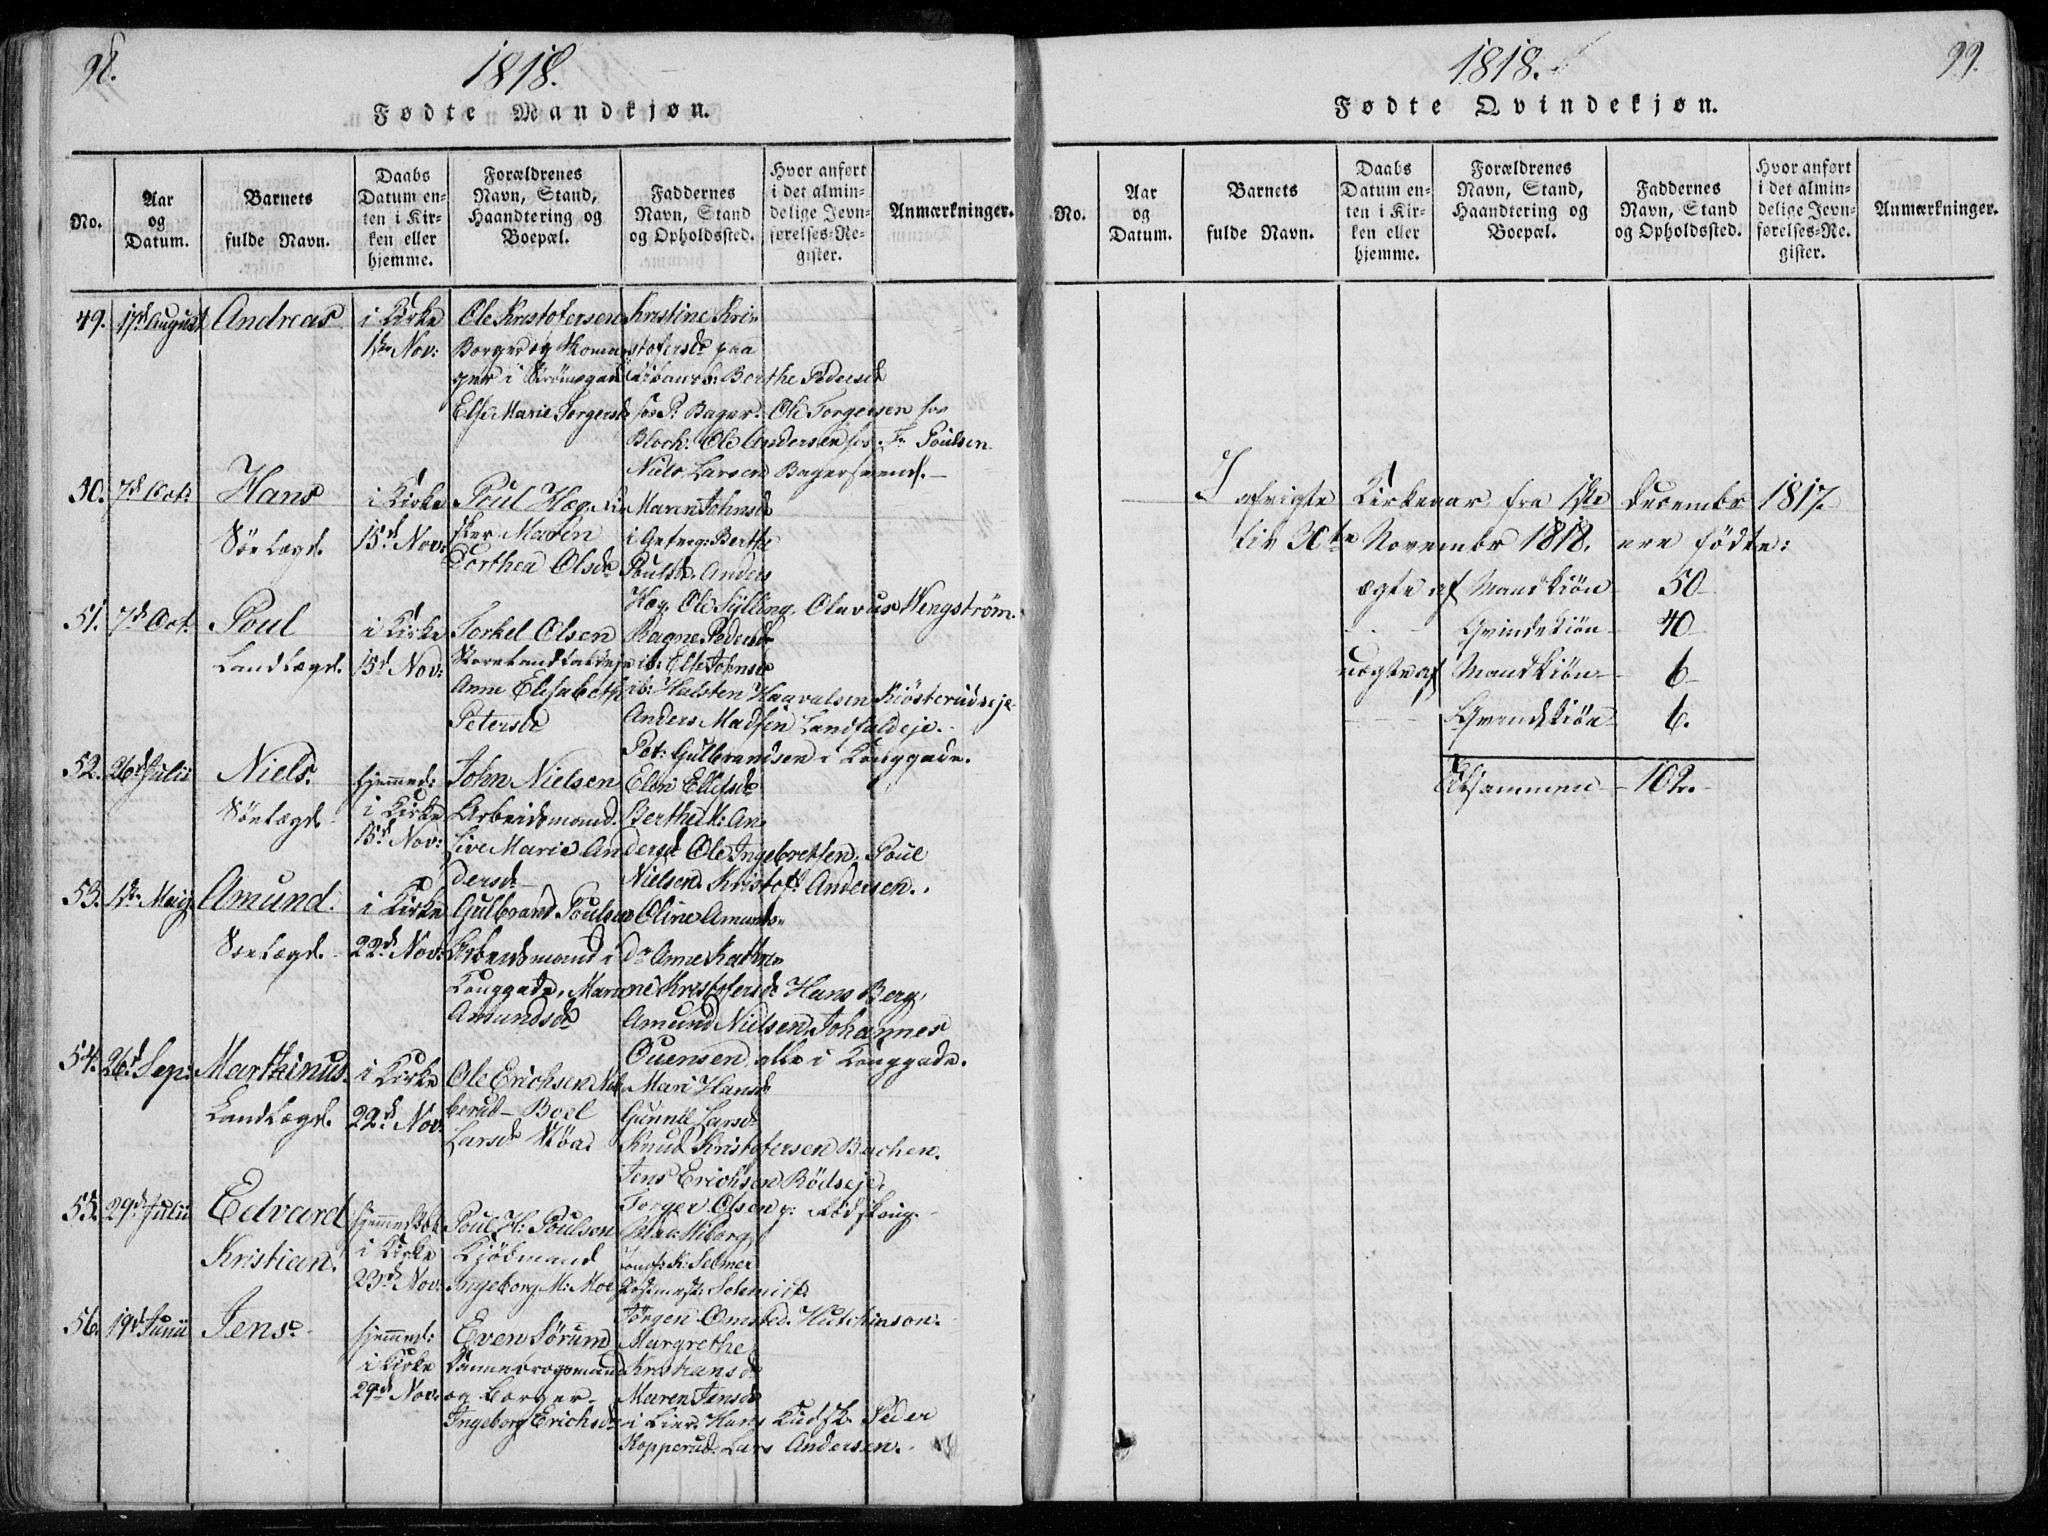 98.
1818.
Fødte Mandkjøn.
No.
Aar
og
Datum.
Barnets
fulde Navn.
Daabs
Datum en-
ten i Kir-
ken eller
hjemme.
Forældrenes
Navn, Stand,
Haandtering og
Boepæl.
Faddernes
Navn, Stand
og Opholdssted.
Hvor anført
i det almin-
delige Jevn-
førelses-Re-
gister.
Anmærkninger.
49.
17d August
Andreas
i Kirke
1ste Nov:
Ole Kristofersen
Borger og
i Strømsgad
Else Marie Torgersd
Kristine Kri-
stofersd paa
Berthe Pedersd
Bager. Ole Torgersen
Bloch: Ole Andersen
Poulsen
Niels Larsen Bagersvend.
50.
7d Oct:
Hans
Søe Lægd.
i Kirke
15d Nov:
Poul Hæg
Maren
Dorthea Olsd
Maren Johnsd
Berthe
Poulsd. Anders
Hæg. Ole Sylling. Olavus Wengstrøm.
51.
7d Oct.
Poul
Land Lægd.
i Kirke
15d Nov:
Torkel Olsen
Anne Elisabeth
Petersd
Ragne Pedersd
ib: Else Johnsd
ib: Halsten Haavalsen Kiøsterudseje
Anders Madsen Landfaldeje.
Pet: Gulbrandsen i Konggade.
52.
26d Julii
Niels.
Søe Lægd.
hjemmed:
i Kirke
15d Nov:
John Nielsen
Arbeidsmand.
Live Marie An
dersd
Elen Ellefsd
Berthe M: An-
dersd Ole Ingebretsen. Poul
Nielsen. Kristof: Andersen.
53.
1ste Maij
Amund.
Søe Lægd.
i Kirke
22d Nov:
Gulbrand Poulsen
Arbeidsmand i
Konggade, Marie
Amundsd
Oline Amunds-
d. Anne Kathr-
Kristofersd. Hans Berg.
Amund Nielsen. Johannes
Ouensen alle i Konggade.
54.
26d Sep:
Marthinus.
Land Lægd.
i Kirke
22d Nov:
Ole Erichsen
Boel
Larsd
Mari Hansd
Gunnil Larsd
Knud Kristofersen Bachen.
Jens Erichsen Rødseje.
Torger Olsen
55.
29d Julii
Edvard
Kristian.
i Kirke
23d Nov:
Poul H: Poulson
Kiøbmand
Ingeborg M: Moe
Wiborg
K: Selmer
Postmest: Schmidt.
Jørgen Omsted. Hutchinson.
56.
19d Junii
Jens.
hjemmed:
i Kirke
29d Nov:
Even Sørum
Dannebrogsmand
og Borger
Ingeborg Erichsd
Margrethe
Kristiansd
Maren Jensd
i Lier. Hans Kudsk. Peder
Kopperud. Lars Andersen.
1818.
99.
Fødte Qvindekjøn.
No.
Aar
og
Datum.
Barnets
fulde Navn.
Daabs
Datum en-
ten i Kir-
ken eller
hjemme.
Forældrenes
Navn, Stand,
Haandtering og
Boepæl.
Faddernes
Navn, Stand
og Opholdssted.
Hvor anført
i det almin-
delige Jevn-
førelses-Re-
gister.
Anmærkninger.
I afvigte Kirkeaar fra 1ste Decembr 1817.
til 30te Novembr 1818. ere fødte:
ægte af Mandkiøn 50
Qvindekiøn 40
uægte af Mandkiøn 6
Qvindekiøn 6.
Tilsammen 102.